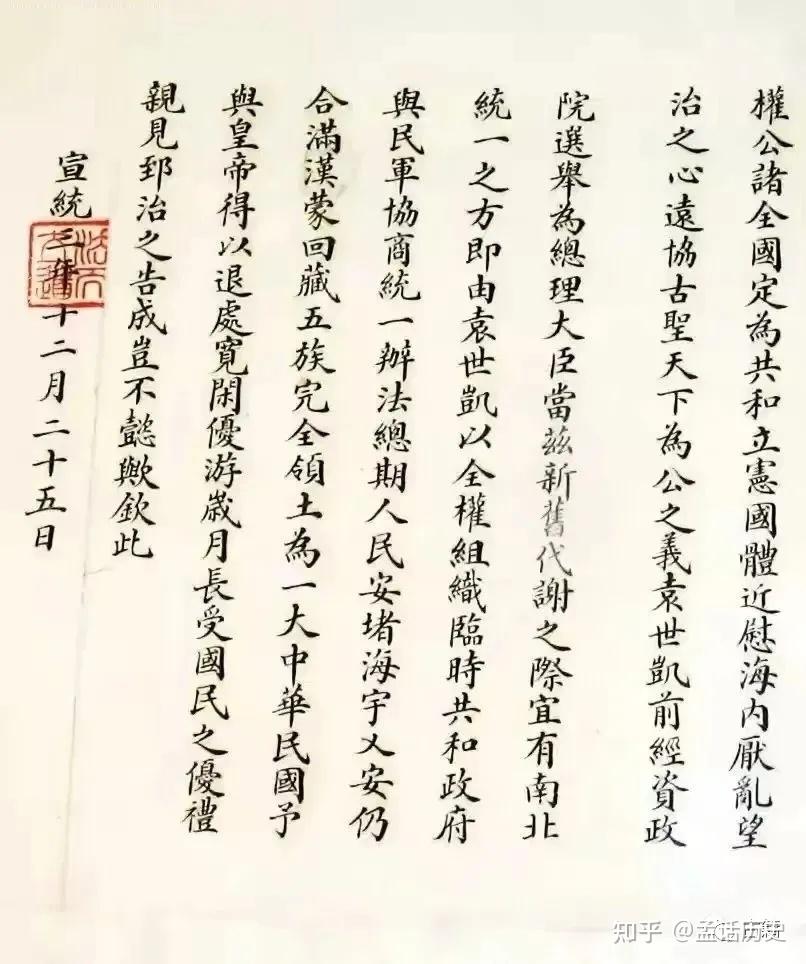 權公諸全國定為共和立憲國體近慰海內厭亂望
治之心遠協古聖天下為公之義袁世凱前經資政
院選舉為總理大臣當茲新舊代謝之際宜有南北
統一之方即由袁世凱以全權組織臨時共和政府
與民軍協商統一辦法總期人民安堵海宇乂安仍
合滿漢蒙回藏五族完全領土為一大中華民國予
與皇帝得以退處寬閑優游歲月長受國民之優禮
親見郅治之告成豈不懿歟欽此
宣統三年十二月二十五日
法天立道
知乎 @孟话历史